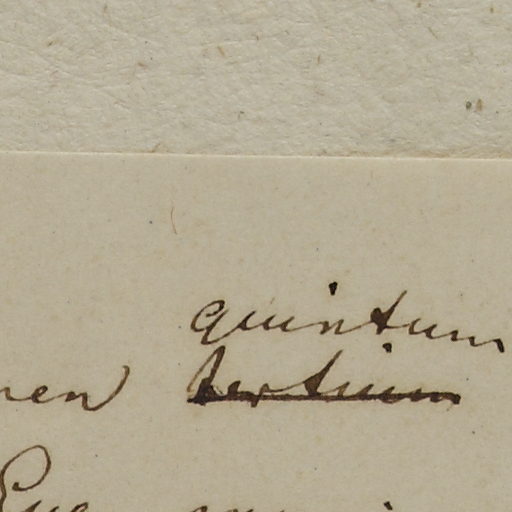 quintum
nen tertium